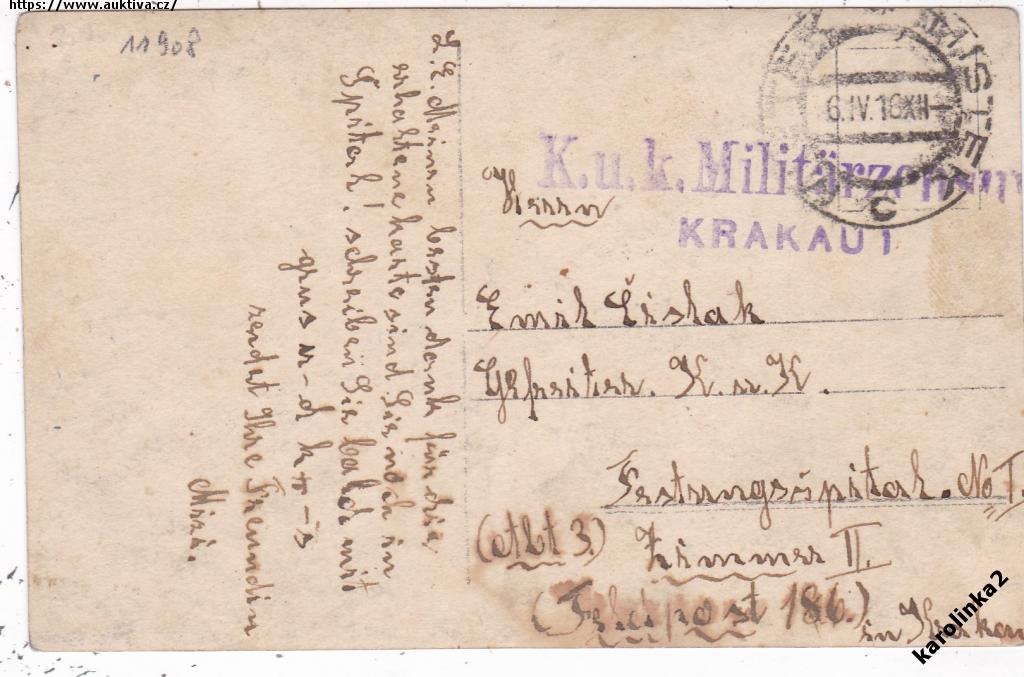 https://www.auktiva.cz/
11908
L. E. Meinen besten dank für die
erhaltene karte sind Sie noch in
Spital! schreiben Sie bald mit
grus u-d k-ss
sendet Ihre Freundin
Mizi.
6.IV.16XII
K.u.k. Militärzensur
KRAKAU 1
Herrn
Emil Čislak
Gefreiter. K. u. K.
Festungsspital. No I.
(Abt 3.) Zimmer II.
(Feldpost 186.) in Krakau
karolinka2